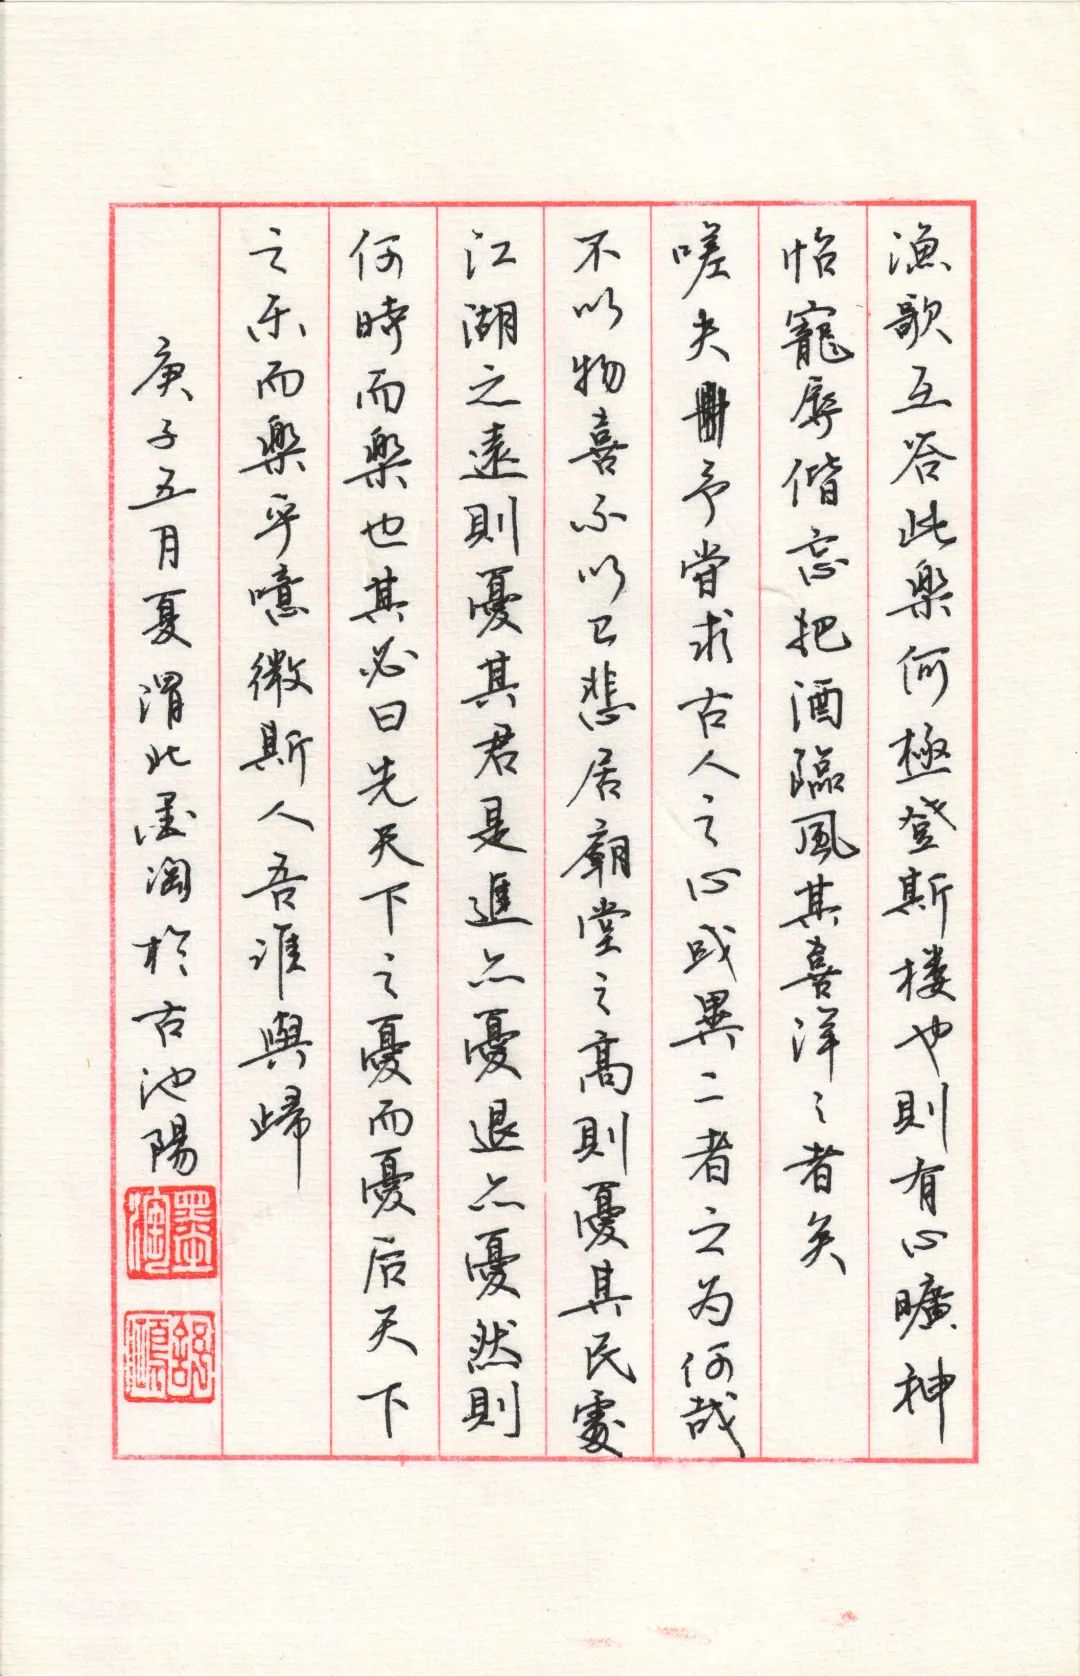 渔歌互答此樂何極登斯楼也則有心曠神
怡寵辱偕忘把酒臨風其喜洋々者矣
嗟夫予嘗求古人之心或異二者之为何哉
不以物喜不以己悲居廟堂之高則憂其民處
江湖之遠則憂其君是進亦憂退亦憂然則
何時而樂也其必曰先天下之憂而憂后天下
之乐而樂乎噫微斯人吾誰與歸
庚子五月夏渭北墨淘於古池陽